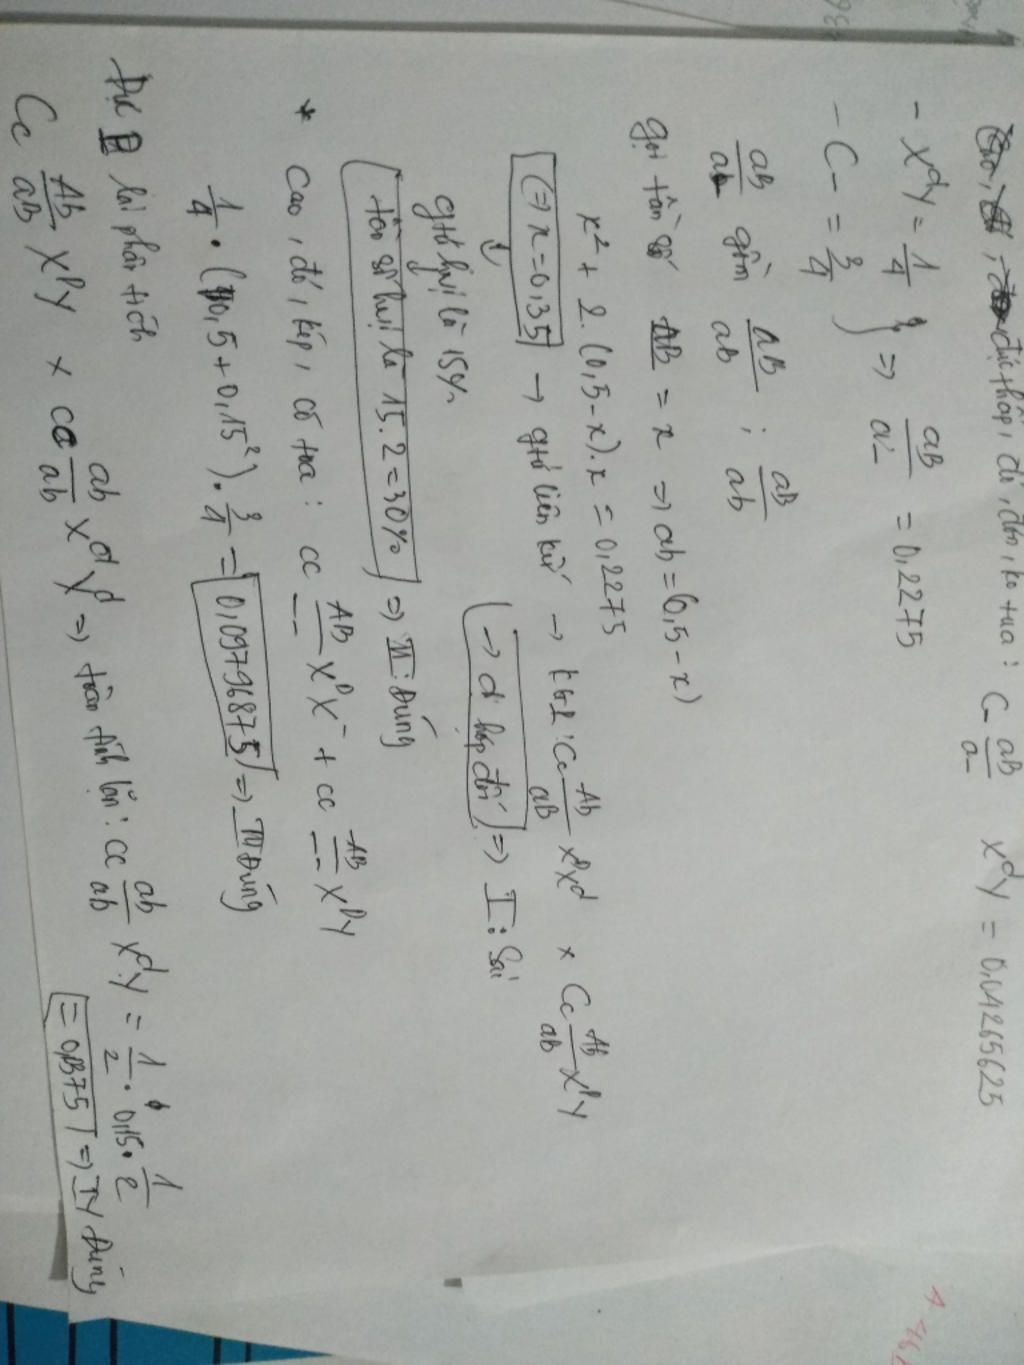 đực thấp, đỏ, đơn, ko tua : C- aB/a- XdY = 0,04265625
- XdY = 1/4
- C- = 3/4 } => aB/a- = 0,2275
aB/a- gồm aB/aB ; aB/ab
gọi tần số aB = x => ab = (0,5 - x)
x² + 2.(0,5-x).x = 0,2275
(=> x = 0,35 → gtử liên kết → KG P : Cc Ab/aB XDXd × Cc Ab/aB XDY
→ dị hợp đối => I : Sai
gtử hvị là 15%
tần số hvị là 15.2 = 30% => II : Đúng
* Cao, đỏ, kép, có tua : cc AB/-- XDX- + cc AB/-- XDY
1/4 . (0,5 + 0,15²) . 3/4 = 0,09796875 => III Đúng
Đực lai phân tích
Cc Ab/aB XDY × cc ab/ab XdYd => toàn tính lặn : cc ab/ab XdY = 1/2 . 0,15 . 1/2
= 0,0375 => IV Đúng